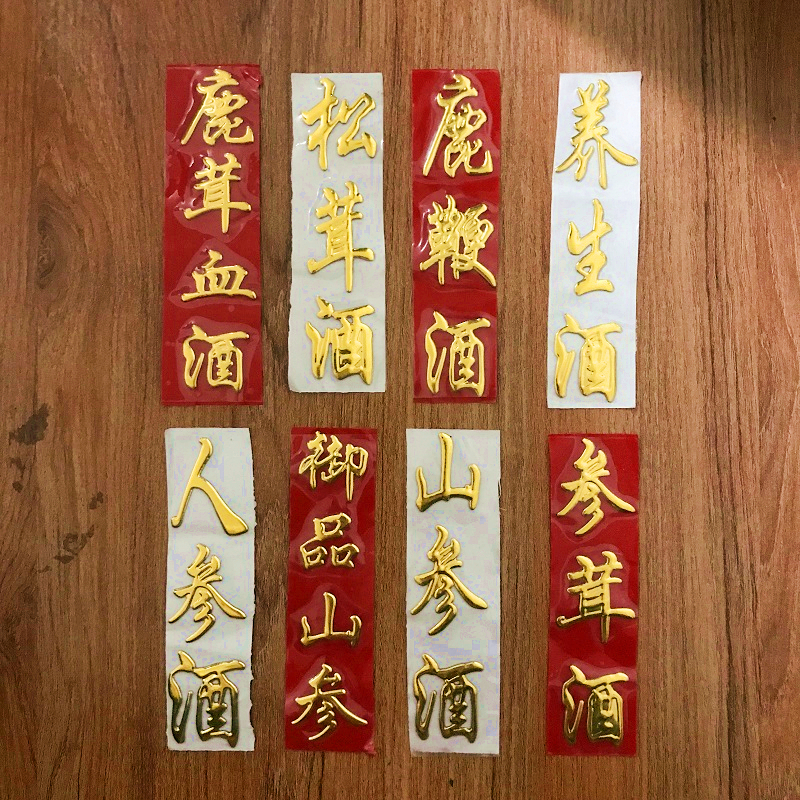 鹿茸血酒
松茸酒
鹿鞭酒
养生酒
人参酒
御品山参
山参酒
参茸酒